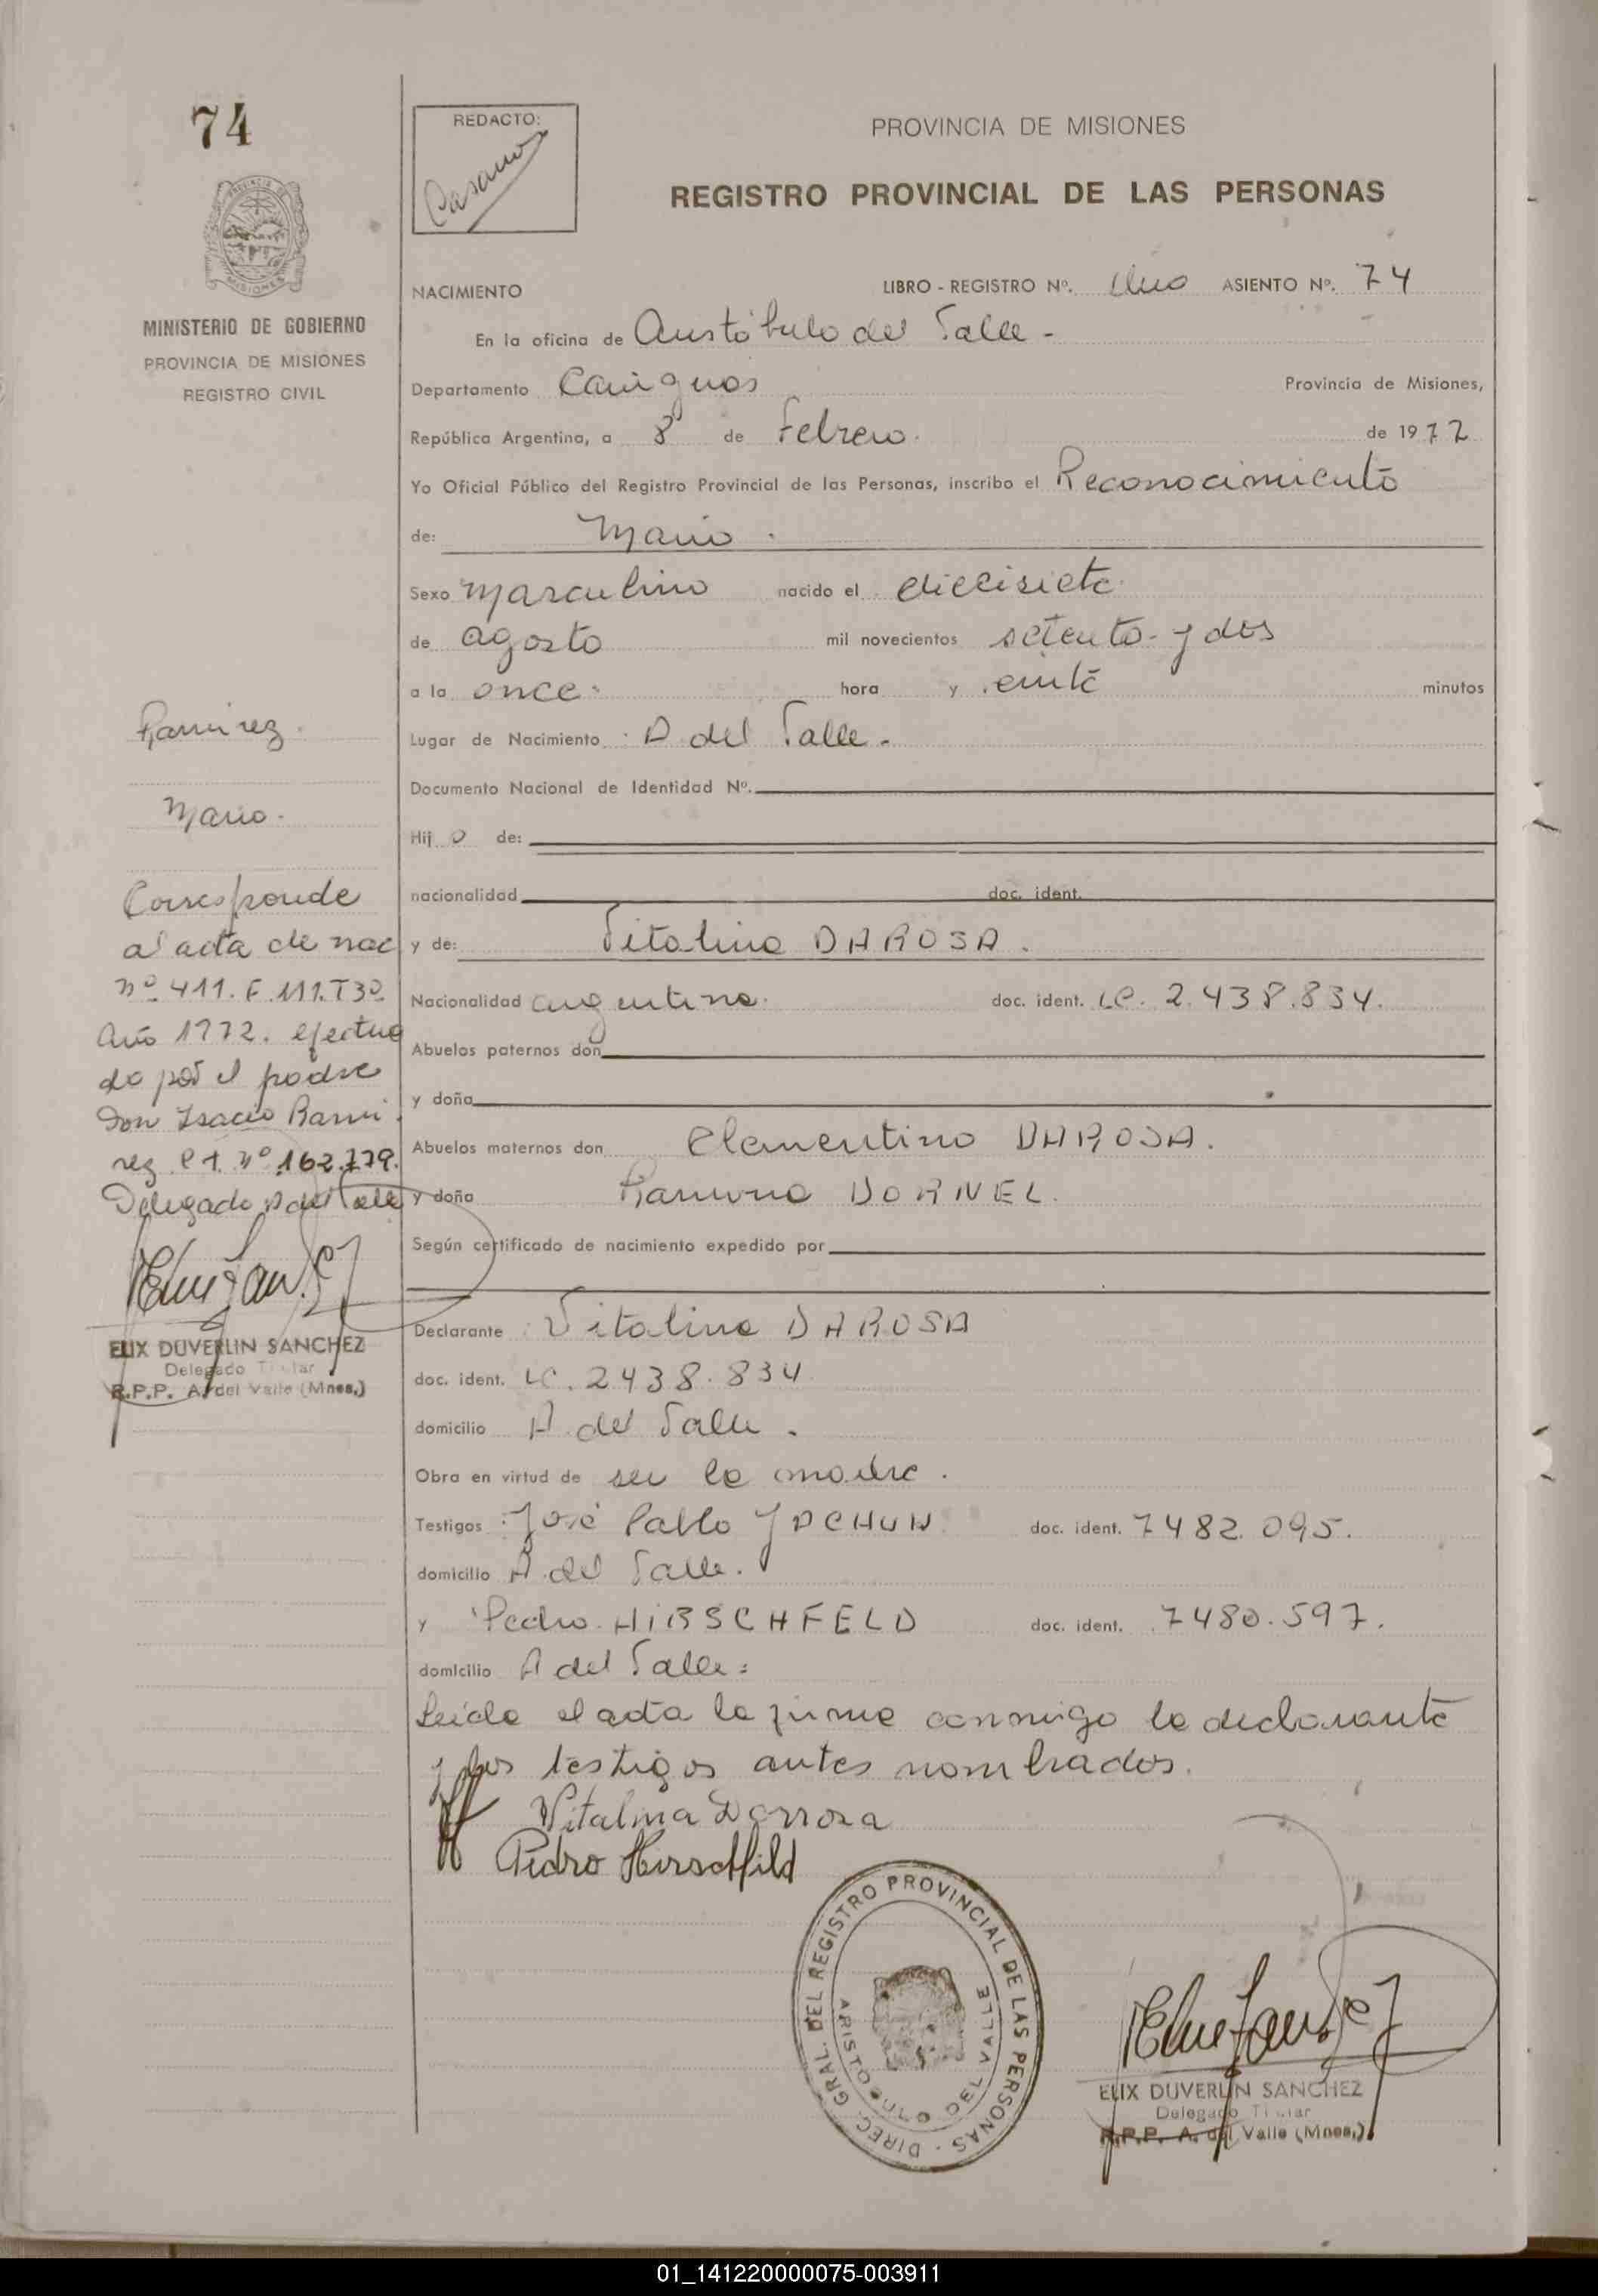 74
REDACTO:
Casano
PROVINCIA DE MISIONES
REGISTRO PROVINCIAL DE LAS PERSONAS
MISIONES
MINISTERIO DE GOBIERNO
PROVINCIA DE MISIONES
REGISTRO CIVIL
NACIMIENTO LIBRO - REGISTRO Nº. Uno ASIENTO Nº. 74
En la oficina de Aristóbulo del Valle -
Departamento Cainguas Provincia de Misiones,
República Argentina, a 8 de Febrero. de 1972
Yo Oficial Público del Registro Provincial de las Personas, inscribo el Reconocimiento
de: Mario.
Sexo Masculino nacido el diecisiete
de agosto mil novecientos setenta y dos
a la once hora y veinte minutos
Lugar de Nacimiento: A del Valle -
Documento Nacional de Identidad Nº.
Hij o de:
nacionalidad doc. ident.
y de: Vitalina DAROSA.
Nacionalidad argentina. doc. ident. LC. 2.438.834.
Abuelos paternos don
y doña
Abuelos maternos don Clementino DAROSA.
y doña Ramona DORNEL.
Según certificado de nacimiento expedido por
Declarante: Vitalina DAROSA
doc. ident. LC. 2438.834
domicilio A. del Valle.
Obra en virtud de ser la madre.
Testigos: José Pablo doc. ident. 7482.095.
domicilio A. del Valle.
y Pedro HIRSCHFELD doc. ident. 7480.597.
domicilio A del Valle:
Leída el acta la firma conmigo la declarante
y los testigos antes nombrados.
Vitalina Darrosa
Pedro Hirschfild
Ramirez.
Mario.
Corresponde
al acta de nac
Nº 411. F. 111. T3º
Año 1972. efectua
do por el padre
Don Isacio Rami
rez Nº 162.779.
Delegado A del Valle
ELIX DUVERLIN SANCHEZ
Delegado Titular
R.P.P. A. del Valle (Mnes.)
DIREC. GRAL. DEL REGISTRO PROVINCIAL DE LAS PERSONAS -
ARISTOBULO DEL VALLE
ELIX DUVERLIN SANCHEZ
Delegado Titular
R.P.P. A. del Valle (Mnes.)
01_141220000075-003911